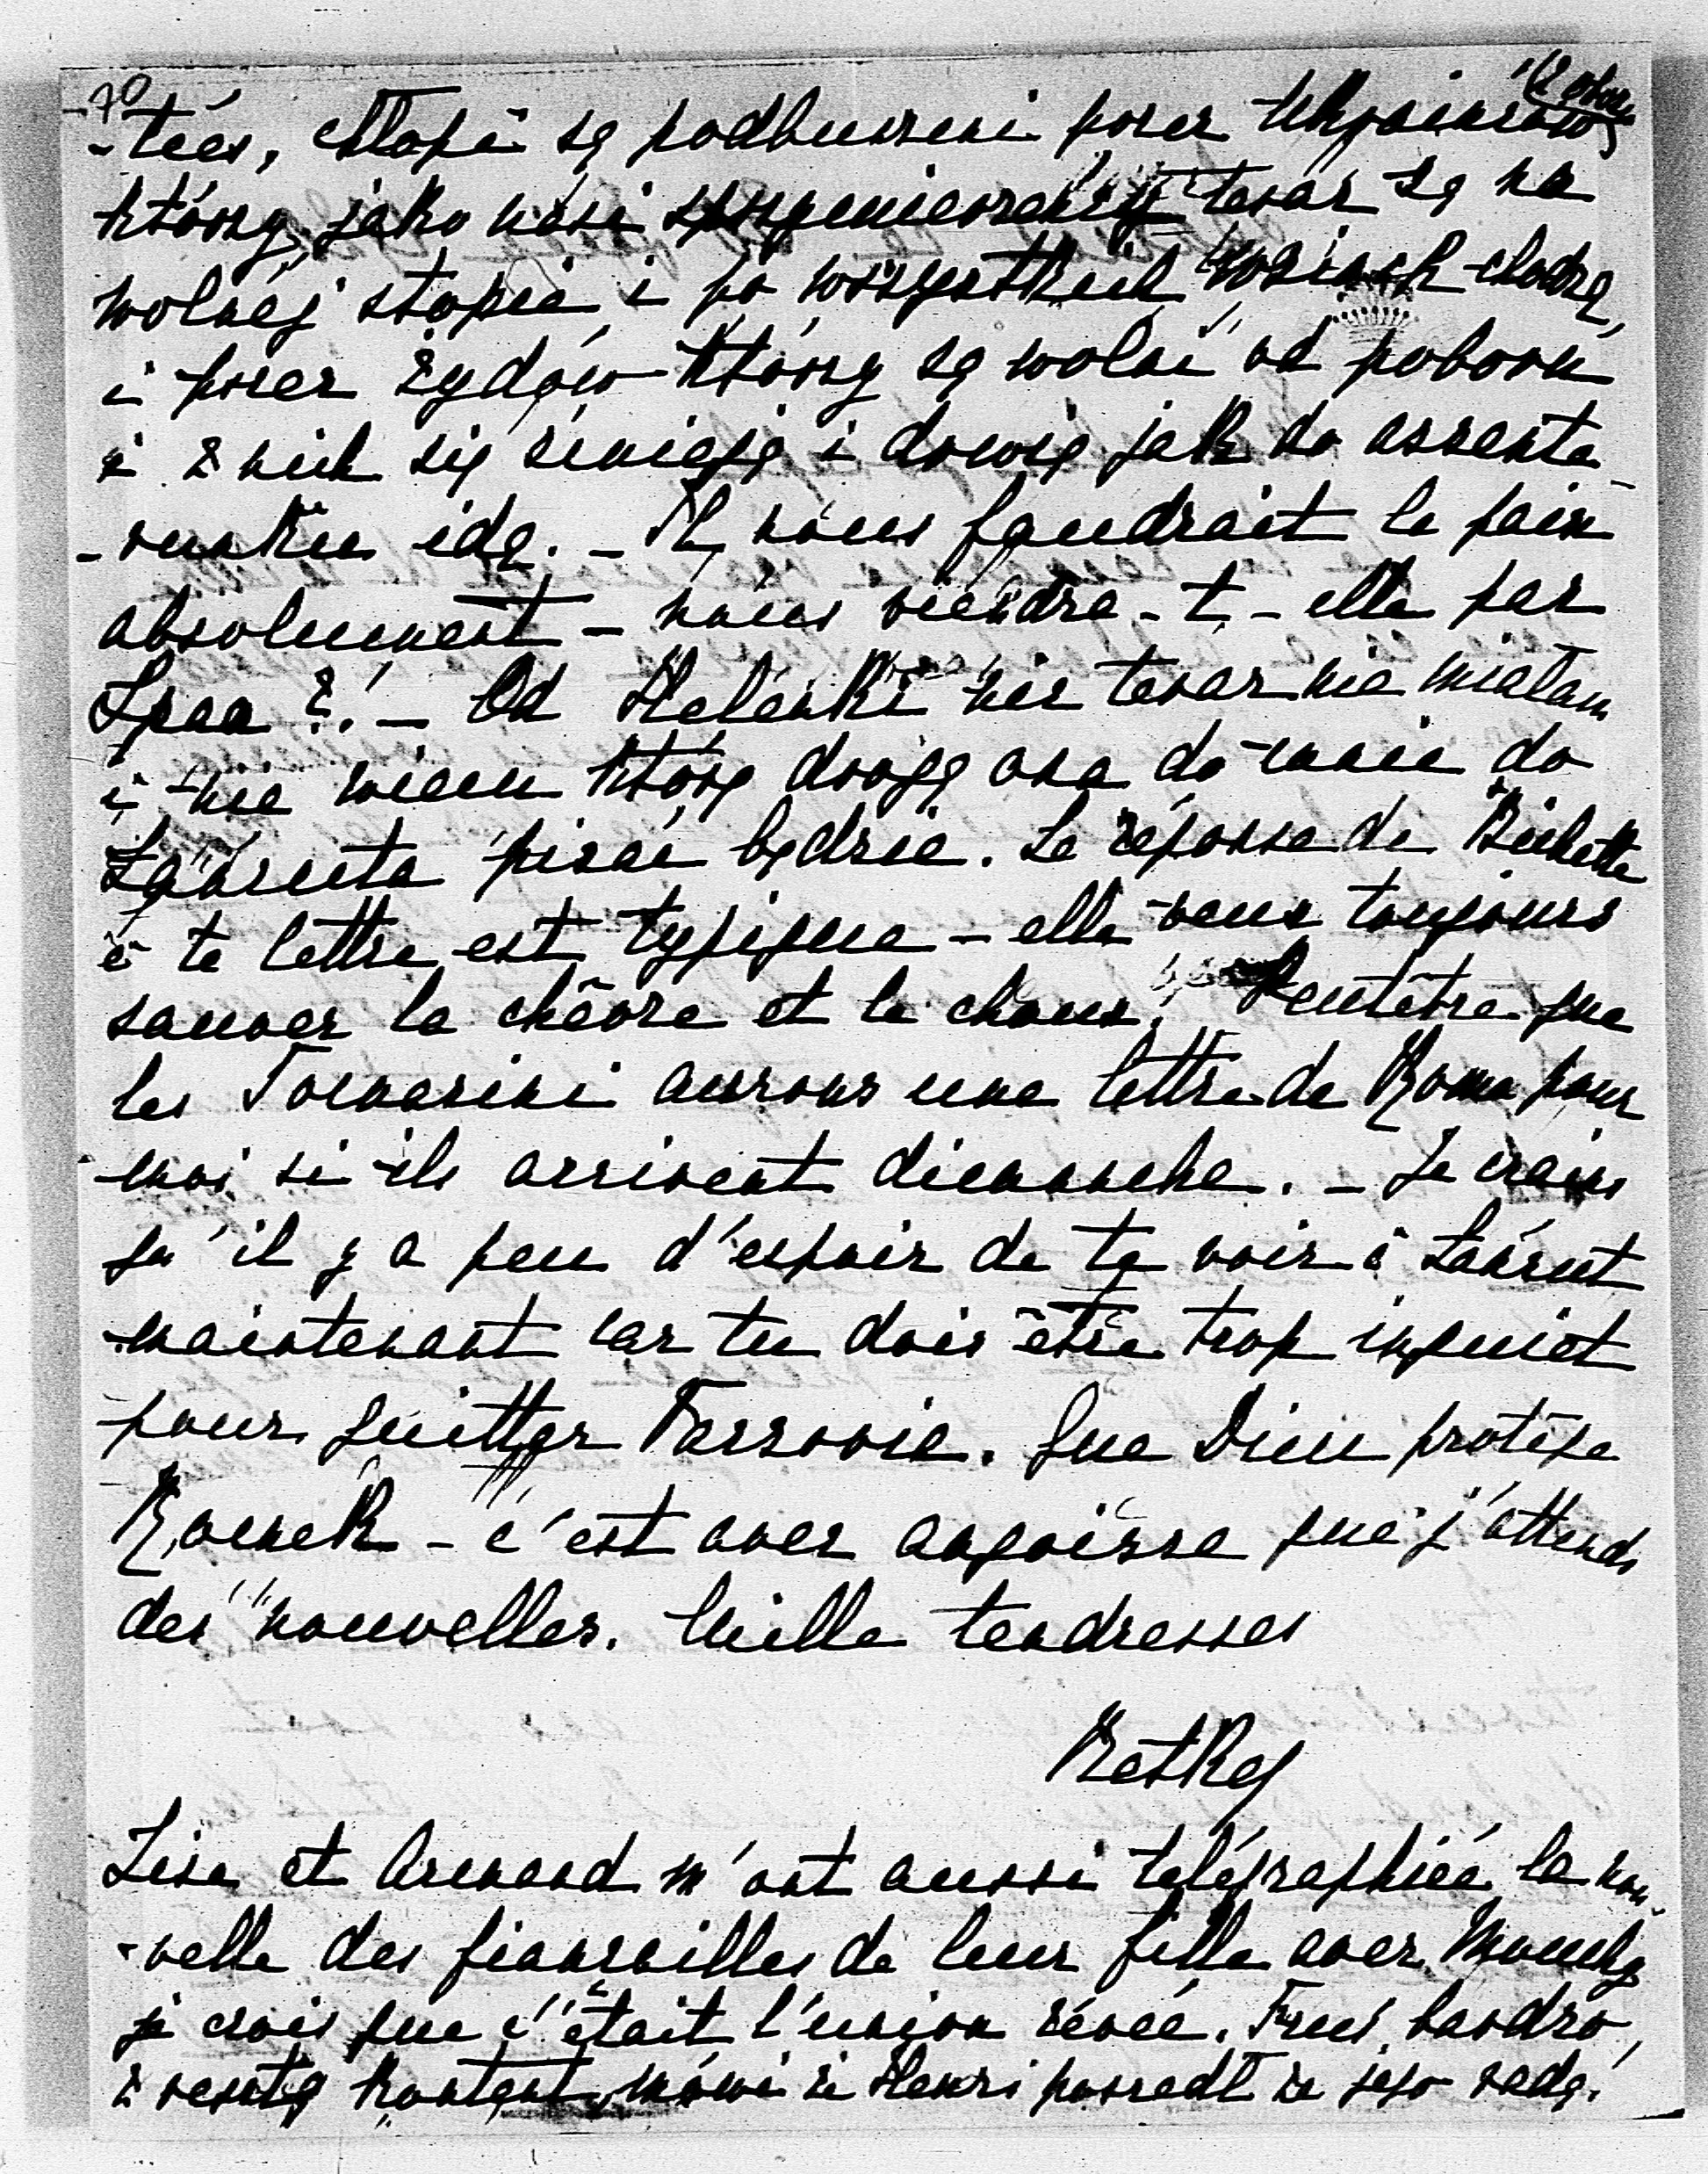 -tées, chłopi są podburzeni przez Ukraińców
którzy, jako nasi sprzymierzeńcy teraz są na
wolnéj stopie i po wszystkich wsiach chodzą,
i przez żydów którzy są wolni od poboru
i z nich się śmieją i drwią jak do assenta-
-runku idą. - Il nous faudrait la paix
absolument - nous viendra-t-elle par
Spaa?! - Od Helenki nic teraz nie miałam
i nie wiem którą drogą ona do mnie do
Łańcuta pisać będzie. La réponse de Bichette
à ta lettre est typique - elle veux toujours
sauver la chèvre et le choux. Peutêtre que
les Tomasini aurons une lettre de Rome pour
moi si ils arrivent dimanche. - Je crains
qu'il y a peu d'espoir de te voir à Łańcut
maintenant car tu dois être trop inquiet
pour quitter Varsovie. Que Dieu protège
- c'est avec angoisse que j'attends
des nouvelles. Mille tendresses
Betka
Lisa et Arnaud m'ont aussi télégraphiéé la nou-
-velle des fiançailles de leur fille avec
je crois que c'était l'union rêvée. bardzo
z resztą kontent, mówi że Henri poszedł za jego radą!